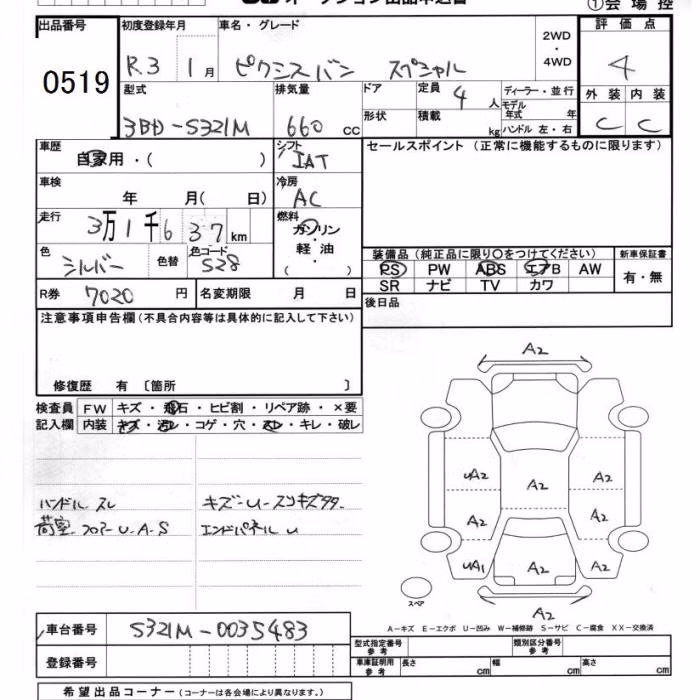 オークション出品申込書 ①会場控
出品番号 初度登録年月 車名・グレード 2WD ・ 4WD 評価点
0519 R.3 1月 ピクシスバン スペシャル 4
型式 排気量 ドア 定員 4人 ディーラー・並行 外装 内装
3BD-S321M 660cc 形状 積載 kg モデル年式 年 C C
ハンドル 左・右
車歴 自家用・( ) シフト IAT セールスポイント(正常に機能するものに限ります)
車検 年 月( 日) 冷房 AC
走行 3万1千637km 燃料 ガソリン・軽油・( )
色 シルバー 色替 色コード S28 装備品(純正品に限り○をつけてください) 新車保証書
PS PW ABS エアB AW 有・無
R券 7020円 名変期限 月 日 SR ナビ TV カワ
注意事項申告欄(不具合内容等は具体的に記入して下さい) 後日品
修復歴 有 〔箇所 〕
検査員 FW キズ・飛石・ヒビ割・リペア跡・×要
記入欄 内装 キズ・汚レ・コゲ・穴・スレ・キレ・破レ
ハンドル スレ キズ-U-スリキズ多々.
荷室.フロアーU.A.S エンドパネル U
A2
UA2 A2 A2
A2 A2
UA1 A2 A2
A2
スペア
A-キズ E-エクボ U-凹み W-補修跡 S-サビ C-腐食 XX-交換済
車台番号 S321M-0035483 型式指定番号 参考 類別区分番号 参考
登録番号 車庫証明用 参考 長さ cm 幅 cm 高さ cm
希望出品コーナー(コーナーは各会場により異なります。)